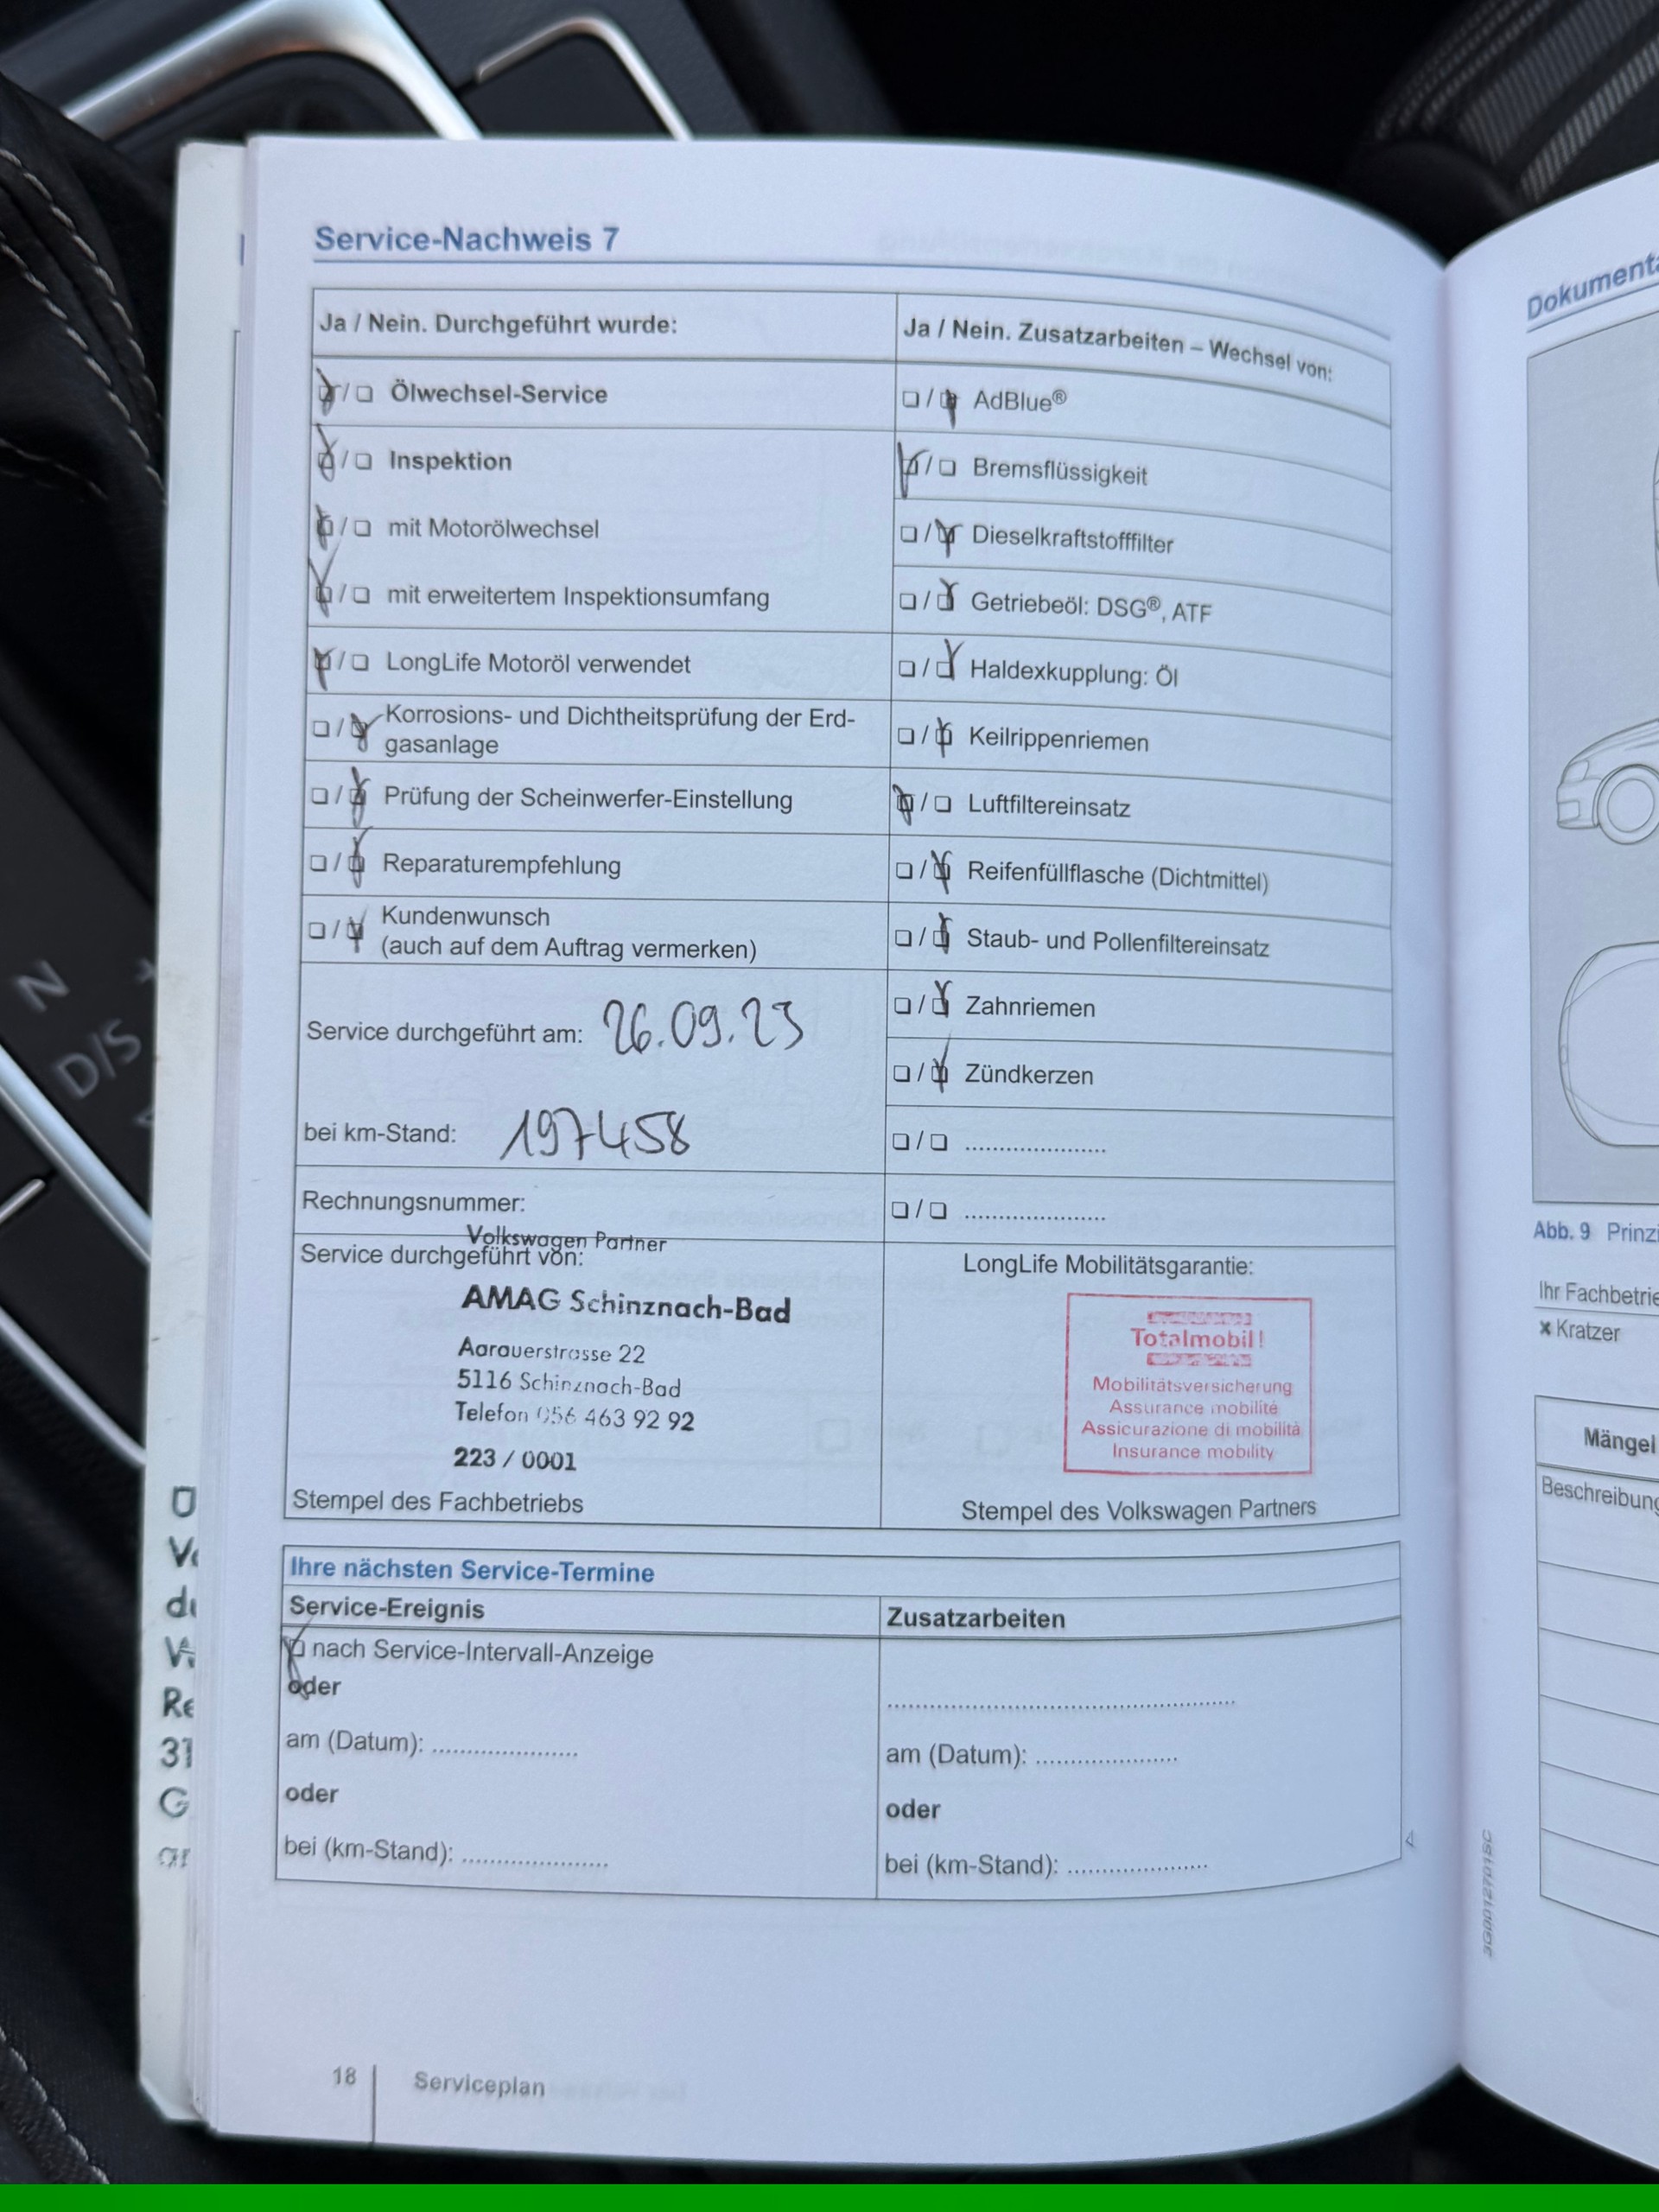 Service-Nachweis 7
Ja / Nein. Durchgeführt wurde:
Ölwechsel-Service
Inspektion
mit Motorölwechsel
mit erweitertem Inspektionsumfang
LongLife Motoröl verwendet
Korrosions- und Dichtheitsprüfung der Erd-
gasanlage
Prüfung der Scheinwerfer-Einstellung
Reparaturempfehlung
Kundenwunsch
(auch auf dem Auftrag vermerken)
Service durchgeführt am: 26.09.23
bei km-Stand: 197458
Rechnungsnummer:
Volkswagen Partner
Service durchgeführt von:
AMAG Schinznach-Bad
Aarauerstrasse 22
5116 Schinznach-Bad
Telefon 056 463 92 92
223 / 0001
Stempel des Fachbetriebs
Ja / Nein. Zusatzarbeiten – Wechsel von:
AdBlue®
Bremsflüssigkeit
Dieselkraftstofffilter
Getriebeöl: DSG®, ATF
Haldexkupplung: Öl
Keilrippenriemen
Luftfiltereinsatz
Reifenfüllflasche (Dichtmittel)
Staub- und Pollenfiltereinsatz
Zahnriemen
Zündkerzen
LongLife Mobilitätsgarantie:
Totalmobil!
Mobilitätsversicherung
Assurance mobilité
Assicurazione di mobilità
Insurance mobility
Stempel des Volkswagen Partners
Ihre nächsten Service-Termine
Service-Ereignis
nach Service-Intervall-Anzeige
oder
am (Datum):
oder
bei (km-Stand):
Zusatzarbeiten
am (Datum):
oder
bei (km-Stand):
18
Serviceplan
3G0012701SC
Abb. 9 Prinzi
Ihr Fachbetrie
Kratzer
Mängel
Beschreibung
Dokumenta
N
D/S